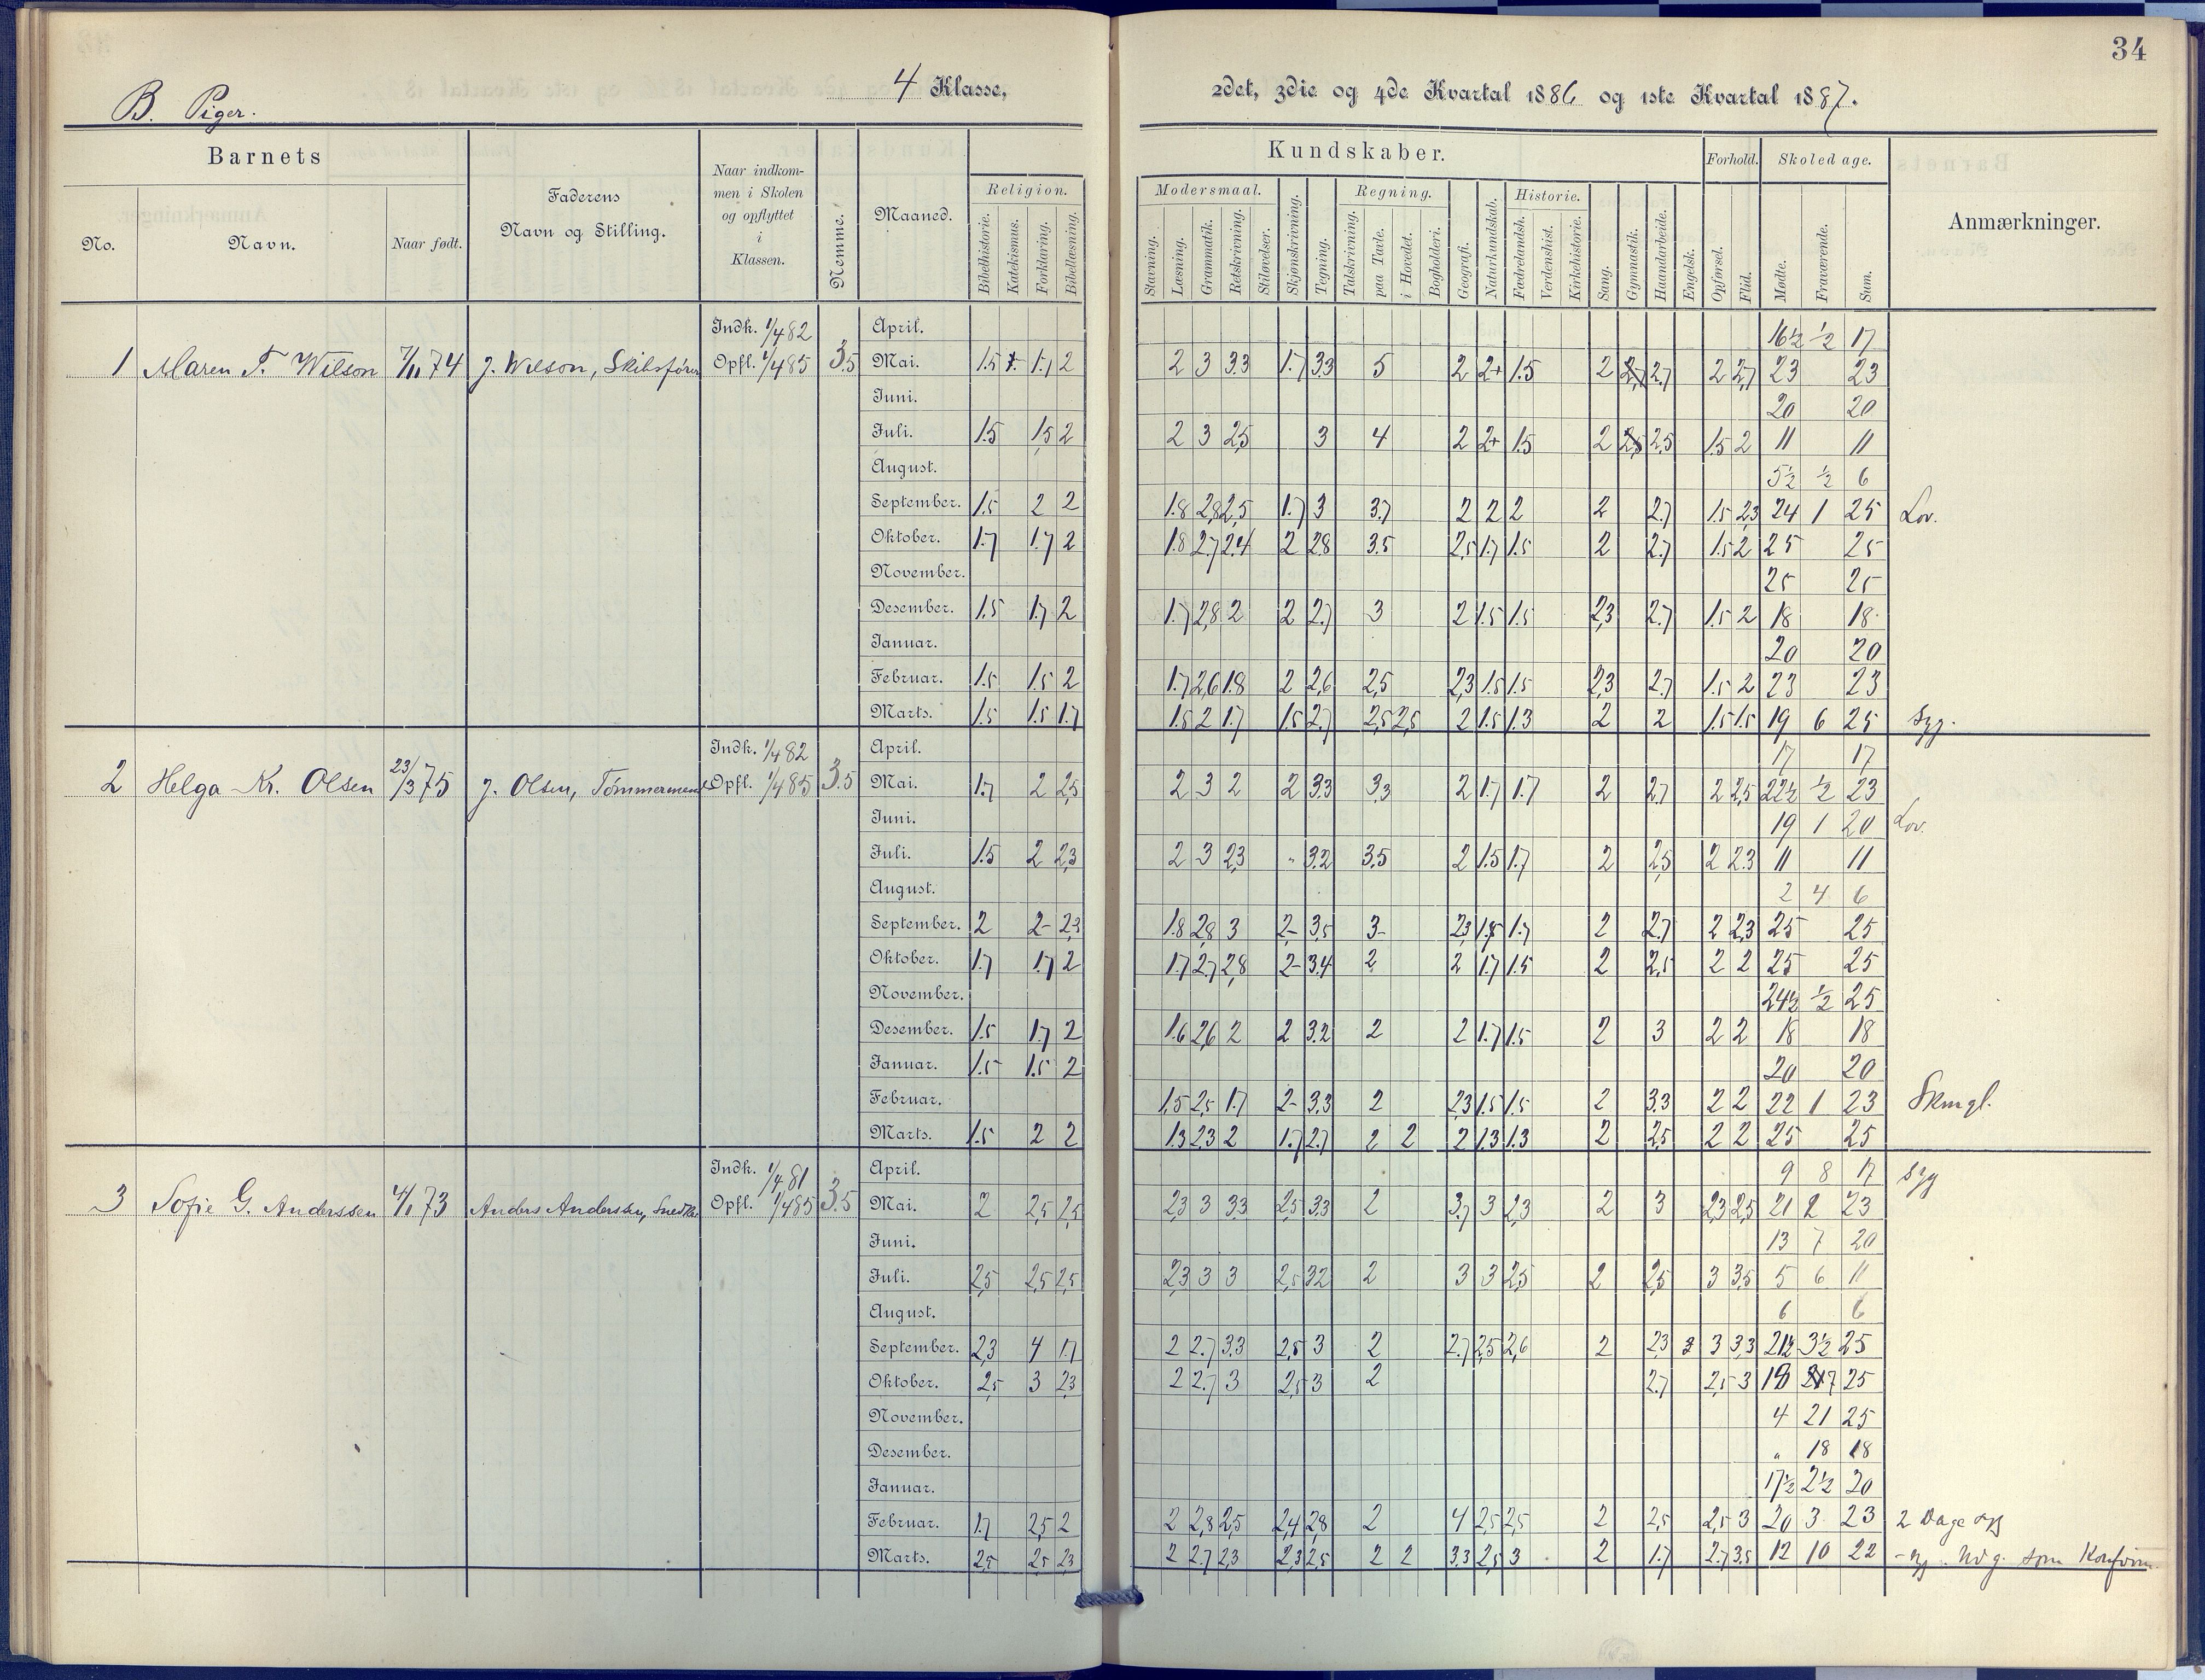 34
B. Piger.
4 Klasse, 2det, 3die og 4de Kvartal 1886 og 1ste Kvartal 1887.
Barnets
No. Navn. Naar født.
Faderens Navn og Stilling.
Naar indkommen i Skolen og opflyttet i Klassen.
Nemme. Maaned.
Kundskaber.
Religion. Bibelhistorie. Katekismus. Forklaring. Bibellæsning.
Modersmaal. Stavning. Læsning. Grammatik. Retskrivning. Stiløvelser.
Skjønskrivning. Tegning.
Regning. Talskrivning. paa Tavle. i Hovedet. Bogholderi.
Geografi. Naturkundskab.
Historie. Fædrelandsh. Verdenshist. Kirkehistorie.
Sang. Gymnastik. Haandarbeide. Engelsk.
Forhold. Opførsel. Flid.
Skoledage. Mødte. Fraværende. Sum.
Anmærkninger.
1 Maren T. Wilson 7/11 74 J. Wilson, Skibsfører Indk. 1/4 82 Opfl. 1/4 85 3.5
April. 16½ ½ 17
Mai. 1.5 1.7 2 2 3 3.3 1.7 3.3 5 2 2+ 1.5 2 2.7 2.7 2 2.7 23 23
Juni. 20 20
Juli. 1.5 1.5 2 2 3 2.5 3 4 2 2+ 1.5 2 2.5 2.5 1.5 2 11 11
August. 5½ ½ 6
September. 1.5 2 2 1.8 2.8 2.5 1.7 3 3.7 2 2 2 2 2.7 1.5 2.3 24 1 25 Lov.
Oktober. 1.7 1.7 2 1.8 2.7 2.4 2 2.8 3.5 2.5 1.7 1.5 2 2.7 1.5 2 25 25
November. 25 25
Desember. 1.5 1.7 2 1.7 2.8 2 2 2.7 3 2 1.5 1.5 2.3 2.7 1.5 2 18 18
Januar. 20 20
Februar. 1.5 1.5 2 1.7 2.6 1.8 2 2.6 2.5 2.3 1.5 1.5 2.3 2.7 1.5 2 23 23
Marts. 1.5 1.5 1.7 1.5 2 1.7 1.5 2.7 2.5 2.5 2 1.5 1.3 2 2 1.5 1.5 19 6 25 Syg.
2 Helga Kr. Olsen 23/3 75 J. Olsen, Tømmermand Indk. 1/4 82 Opfl. 1/4 85 3.5
April. 17 17
Mai. 1.7 2 2.5 2 3 2 2 3.3 3.3 2 1.7 1.7 2 2.7 2 2.5 22½ ½ 23
Juni. 19 1 20 Lov.
Juli. 1.5 2 2.3 2 3 2.3 " 3.2 3.5 2 1.5 1.7 2 2.5 2 2.3 11 11
August. 2 4 6
September. 2 2- 2.3 1.8 2.8 3 2- 3.5 3- 2.3 1.8 1.7 2 2.7 2 2.3 25 25
Oktober. 1.7 1.7 2 1.7 2.7 2.8 2- 3.4 2 2 1.7 1.5 2 2.5 2 2 25 25
November. 24½ ½ 25
Desember. 1.5 1.7 2 1.6 2.6 2 2 3.2 2 2 1.7 1.5 2 3 2 2 18 18
Januar. 1.5 1.5 2 20 20
Februar. 1.5 2.5 1.7 2- 3.3 2 2.3 1.5 1.5 2 3.3 2 2 22 1 23 Skmgl.
Marts. 1.5 2 2 1.3 2.3 2 1.7 2.7 2 2 2 1.3 1.3 2 2.5 2 2 25 25
3 Sofie G. Anderssen 4/1 73 Anders Anderssen, Snedker Indk. 1/4 81 Opfl. 1/4 85 3.5
April. 9 8 17 Syg
Mai. 2 2.5 2.5 2.3 3 3.3 2.5 3.3 2 3.7 3 2.3 2 3 2.3 2.5 21 2 23
Juni. 13 7 20
Juli. 2.5 2.5 2.5 2.3 3 3 2.5 3.2 2 3 3 2.5 2 2.5 3 3.5 5 6 11
August. 6 6
September. 2.3 4 1.7 2 2.7 3.3 2.5 3 2 2.7 2.5 2.6 2 2.3 3 3.3 21½ 3½ 25
Oktober. 2.5 3 2.3 2 2.7 3 2.5 3 2 2.7 2.5 3 18 7 25
November. 4 21 25
Desember. " 18 18
Januar. 17½ 2½ 20
Februar. 1.7 2.5 2 2 2.8 2.5 2.4 2.8 2 4 2.5 2.5 2 2.5 2.5 3 20 3 23 2 Dage syg
Marts. 2.5 2.5 2.3 2 2.7 2.3 2.3 2.5 2 2 3.3 2.5 3 2 1.7 2.7 3.5 12 10 22 som Konfirm.